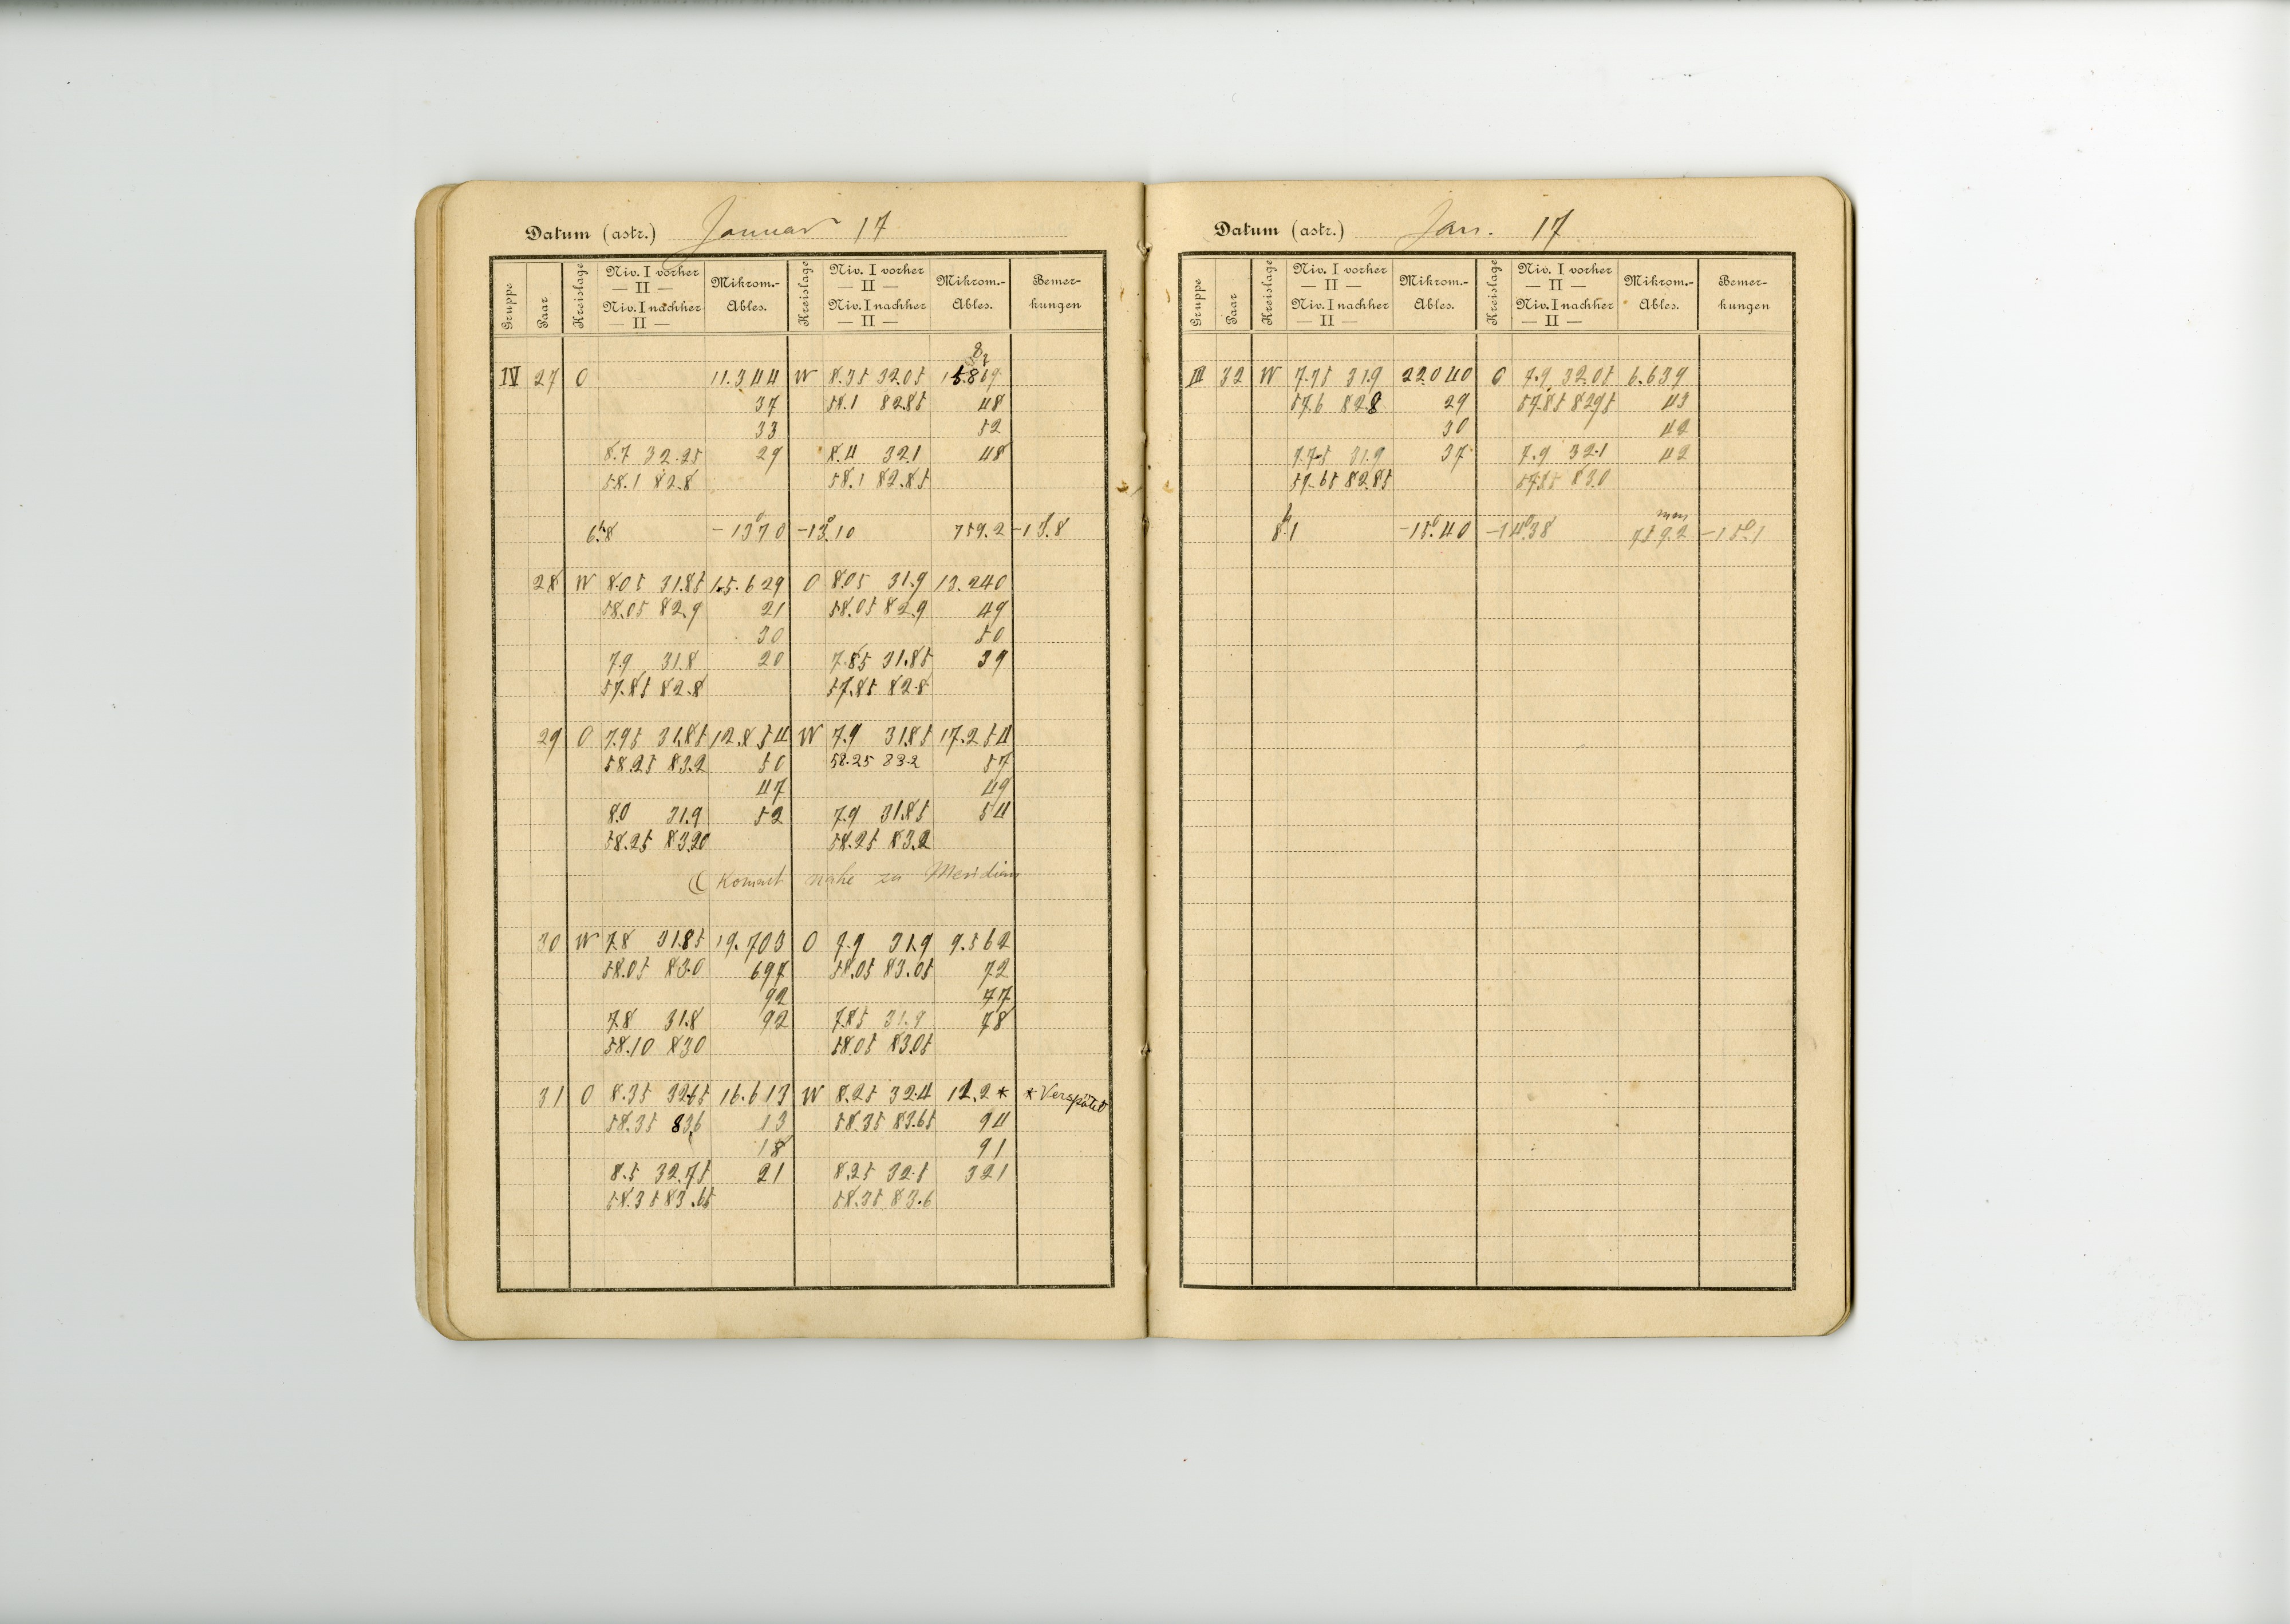 Datum (astr.) Januar 17
Gruppe Paar Kreislage Niv. I vorher Mikrom.- Kreislage Niv. I vorher Mikrom.- Bemer-
— II — — II —
Niv. I nachher Ables. Niv. I nachher Ables. kungen
— II — — II —
IV 27 O 11.344 W 8.35 32.05
37 58.1 82.85 48
33 52
8.7 32.25 29 8.4 32.1 48
58.1 82.8 58.1 82.85
6h.8 -13°70 -13°.10 759.2 -13.8
28 W 8.05 31.85 15.629 O 8.05 31.9 13.240
58.05 82.9 21 58.05 82.9 49
30 50
7.9 31.8 20 7.85 31.85 39
57.85 82.8 57.85 82.8
29 O 7.95 31.85 12.854 W 7.9 31.85 17.254
58.25 83.2 50 58.25 83.2 57
47 49
8.0 31.9 52 7.9 31.85 54
58.25 83.20 58.25 83.2
☾ kommt nahe zu Meridian
30 W 7.8 31.85 19.703 O 7.9 31.9 9.562
58.05 83.0 697 58.05 83.05 72
92 77
7.8 31.8 92 7.85 31.9 78
58.10 83.0 58.05 83.05
31 O 8.35 32.65 16.613 W 8.25 32.4 12.2* *Verspätet
58.35 83.6 13 58.35 83.65 94
18 91
8.5 32.75 21 8.25 32.5 321
58.35 83.65 58.35 83.6
Datum (astr.) Jan. 17
Gruppe Paar Kreislage Niv. I vorher Mikrom.- Kreislage Niv. I vorher Mikrom.- Bemer-
— II — — II —
Niv. I nachher Ables. Niv. I nachher Ables. kungen
— II — — II —
III 32 W 7.75 31.9 22.040 O 7.9 32.05 6.639
57.6 82.8 29 57.85 82.95 43
30 42
7.75 31.9 37 7.9 32.1 42
57.65 82.85 57.85 83.0
8h.1 -15°.40 -14°.38 759.2 mm -15°.1